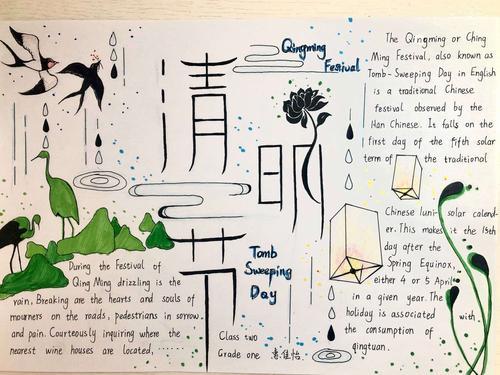 清
明
节
Qingming
Festival
Tomb
Sweeping
Day
The Qingming or Ching
Ming Festival, also known as
Tomb-Sweeping Day in English
is a traditional Chinese
festival observed by the
Han Chinese. It falls on the
first day of the fifth solar
term of the traditional
Chinese luni-solar calend-
er. This makes it the 15th
day after the
Spring Equinox,
either 4 or 5 April
in a given year. The
holiday is associated with
the consumption of
qingtuan.
During the Festival of
Qing Ming drizzling is the
rain, Breaking are the hearts and souls of
mourners on the roads, pedestrians in sorrow
and pain. Courteously inquiring where the
nearest wine houses are located, ......
Class two
Grade one